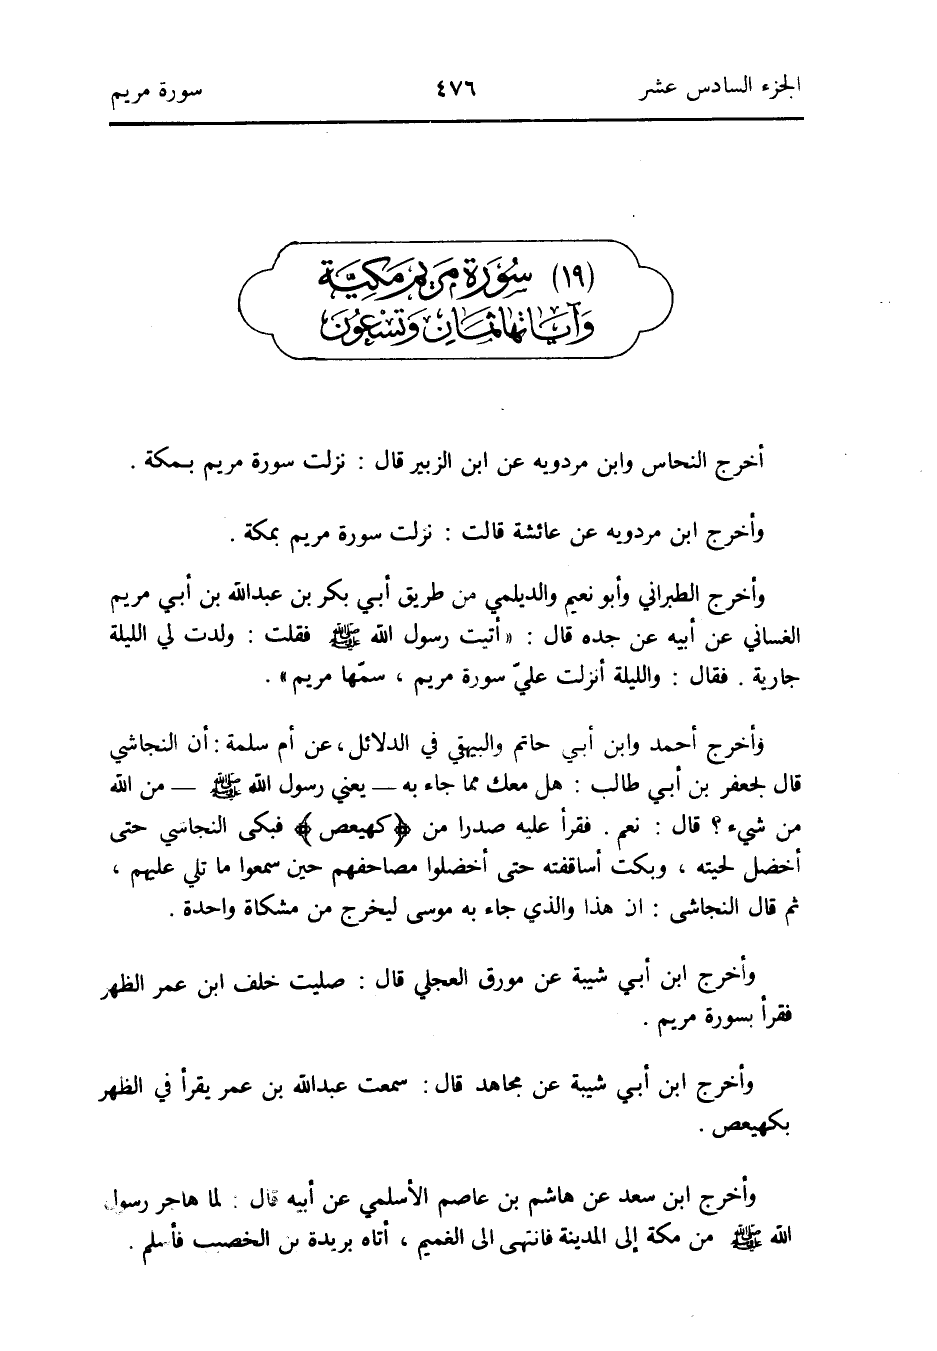 الجزء السادس عشر ٤٧٦ سورة مريم
(١٩) سُورَة مَريَم مَكيَّة
وَآيَاتهَا ثمَان وَتسْعُونَ
أخرج النحاس وابن مردويه عن ابن الزبير قال : نزلت سورة مريم بمكة .
وأخرج ابن مردويه عن عائشة قالت : نزلت سورة مريم بمكة .
وأخرج الطبراني وأبو نعيم والديلمي من طريق أبي بكر بن عبدالله بن أبي مريم
الغساني عن أبيه عن جده قال : « أتيت رسول الله ﷺ فقلت : ولدت لي الليلة
جارية . فقال : والليلة أنزلت عليّ سورة مريم ، سمّها مريم» .
وأخرج أحمد وابن أبي حاتم والبيهقي في الدلائل، عن أم سلمة : أن النجاشي
قال لجعفر بن أبي طالب : هل معك مما جاء به — يعني رسول الله ﷺ — من الله
من شيء ؟ قال : نعم . فقرأ عليه صدرا من ﴿كهيعص﴾ فبكى النجاشي حتى
أخضل لحيته ، وبكت أساقفته حتى أخضلوا مصاحفهم حين سمعوا ما تلي عليهم ،
ثم قال النجاشى : ان هذا والذي جاء به موسى ليخرج من مشكاة واحدة .
وأخرج ابن أبي شيبة عن مورق العجلي قال : صليت خلف ابن عمر الظهر
فقرأ بسورة مريم .
وأخرج ابن أبي شيبة عن مجاهد قال : سمعت عبدالله بن عمر يقرأ في الظهر
بكهيعص .
وأخرج ابن سعد عن هاشم بن عاصم الأسلمي عن أبيه قال : لما هاجر رسول
الله ﷺ من مكة إلى المدينة فانتهى الى الغميم ، أتاه بريدة بن الخصيب فأسلم .